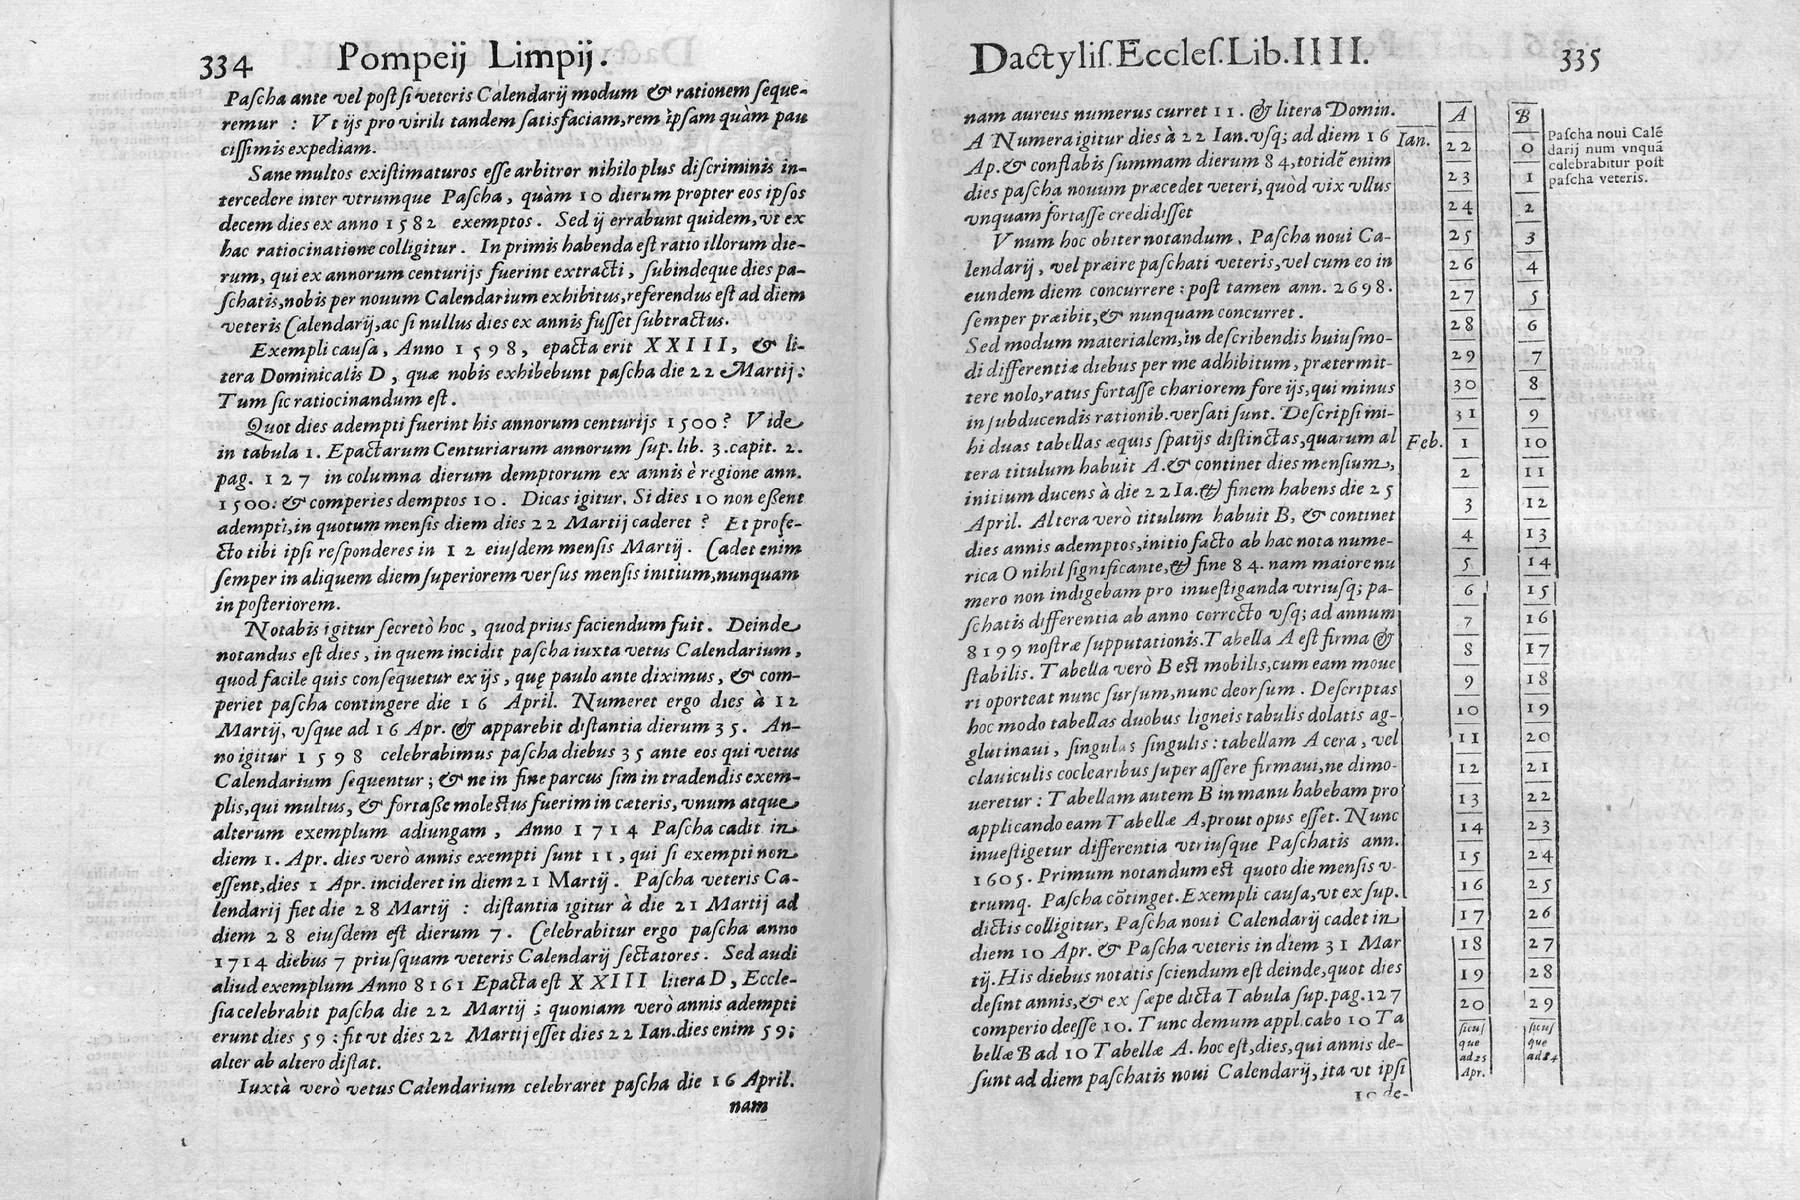 334 Pompeij Limpij.
Paſcha ante vel poſt ſi veteris Calendarij modum & rationem ſeque-
remur : Vt ijs pro virili tandem ſatisfaciam, rem ipſam quàm pau
ciſſimis expediam.
Sane multos exiſtimaturos eſſe arbitror nihilo plus diſcriminis in-
tercedere inter vtrumque Paſcha, quàm 10 dierum propter eos ipſos
decem dies ex anno 1582 exemptos. Sed ij errabunt quidem, vt ex
hac ratiocinatione colligitur. In primis habenda eſt ratio illorum die-
rum, qui ex annorum centurijs fuerint extracti, ſubindeque dies pa-
ſchatis, nobis per nouum Calendarium exhibitus, referendus eſt ad diem
veteris Calendarij, ac ſi nullus dies ex annis fuſſet ſubtractus.
Exempli cauſa, Anno 1598, epacta erit XXIII, & li-
tera Dominicalis D, quæ nobis exhibebunt paſcha die 22 Martij:
Tum ſic ratiocinandum eſt.
Quot dies adempti fuerint his annorum centurijs 1500? Vide
in tabula 1. Epactarum Centuriarum annorum ſup. lib. 3. capit. 2.
pag. 127 in columna dierum demptorum ex annis è regione ann.
1500: & comperies demptos 10. Dicas igitur. Si dies 10 non eßent
adempti, in quotum menſis diem dies 22 Martij caderet? Et profe-
cto tibi ipſi reſponderes in 12 eiuſdem menſis Martij. Cadet enim
ſemper in aliquem diem ſuperiorem verſus menſis initium, nunquam
in poſteriorem.
Notabis igitur ſecretò hoc, quod prius faciendum fuit. Deinde
notandus eſt dies, in quem incidit paſcha iuxta vetus Calendarium,
quod facile quis conſequetur ex ijs, quę paulo ante diximus, & com-
periet paſcha contingere die 16 April. Numeret ergo dies à 12
Martij, vſque ad 16 Apr. & apparebit diſtantia dierum 35. An-
no igitur 1598 celebrabimus paſcha diebus 35 ante eos qui vetus
Calendarium ſequentur; & ne in fine parcus ſim in tradendis exem-
plis, qui multus, & fortaße moleſtus fuerim in cæteris, vnum atque
alterum exemplum adiungam, Anno 1714 Paſcha cadit in
diem 1. Apr. dies verò annis exempti ſunt 11, qui ſi exempti non
eſſent, dies 1 Apr. incideret in diem 21 Martij. Paſcha veteris Ca-
lendarij fiet die 28 Martij : diſtantia igitur à die 21 Martij ad
diem 28 eiuſdem eſt dierum 7. Celebrabitur ergo paſcha anno
1714 diebus 7 priuſquam veteris Calendarij ſectatores. Sed audi
aliud exemplum Anno 8161 Epacta eſt XXIII litera D, Eccle-
ſia celebrabit paſcha die 22 Martij ; quoniam verò annis adempti
erunt dies 59 : fit vt dies 22 Martij eſſet dies 22 Ian. dies enim 59;
alter ab altero diſtat.
Iuxtà verò vetus Calendarium celebraret paſcha die 16 April.
nam
Dactyliſ. Eccleſ. Lib. IIII. 335
nam aureus numerus curret 11. & litera Domin.
A Numera igitur dies à 22 Ian. vſq; ad diem 16
Ap. & conflabis ſummam dierum 84, totidē enim
dies paſcha nouum præcedet veteri, quòd vix vllus
vnquam fortaſſe credidiſſet
Vnum hoc obiter notandum. Paſcha noui Ca-
lendarij, vel præire paſchati veteris, vel cum eo in
eundem diem concurrere : poſt tamen ann. 2698.
ſemper præibit, & nunquam concurret.
Sed modum materialem, in deſcribendis huiuſmo-
di differentiæ diebus per me adhibitum, prætermit-
tere nolo, ratus fortaſſe chariorem fore ijs, qui minus
in ſubducendis rationib. verſati ſunt. Deſcripſi mi-
hi duas tabellas æquis ſpatijs diſtinctas, quarum al
tera titulum habuit A. & continet dies menſium,
initium ducens à die 22 Ia. & finem habens die 25
April. Altera verò titulum habuit B, & continet
dies annis ademptos, initio facto ab hac nota nume-
rica O nihil ſignificante, & fine 84. nam maiore nu
mero non indigebam pro inueſtiganda vtriuſq; pa-
ſchatis differentia ab anno correcto vſq; ad annum
8199 noſtræ ſupputationis. Tabella A eſt firma &
ſtabilis. Tabella verò B eſt mobilis, cum eam moue
ri oporteat nunc ſurſum, nunc deorſum. Deſcriptas
hoc modo tabellas duobus ligneis tabulis dolatis ag-
glutinaui, ſingulas ſingulis : tabellam A cera, vel
clauiculis coclearibus ſuper aſſere firmaui, ne dimo-
ueretur : Tabellam autem B in manu habebam pro
applicando eam Tabellæ A, prout opus eſſet. Nunc
inueſtigetur differentia vtriuſque Paſchatis ann.
1605. Primum notandum eſt quoto die menſis v-
trumq. Paſcha cōtinget. Exempli cauſa, vt ex ſup.
dictis colligitur, Paſcha noui Calendarij cadet in
diem 10 Apr. & Paſcha veteris in diem 31 Mar
tij. His diebus notatis ſciendum eſt deinde, quot dies
deſint annis, & ex ſæpe dicta Tabula ſup. pag. 127
comperio deeſſe 10. Tunc demum applicabo 10 Ta
bellæ B ad 10 Tabellæ A. hoc eſt, dies, qui annis de-
ſunt ad diem paſchatis noui Calendarij, ita vt ipſi
10 de-
A B
Ian. 22 0
23 1
24 2
25 3
26 4
27 5
28 6
29 7
30 8
31 9
Feb. 1 10
2 11
3 12
4 13
5 14
6 15
7 16
8 17
9 18
10 19
11 20
12 21
13 22
14 23
15 24
16 25
17 26
18 27
19 28
20 29
ſicuſ ſicuſ
que que
ad 25 ad 84
Apr.
Paſcha noui Calē
darij num vnquā
celebrabitur poſt
paſcha veteris.